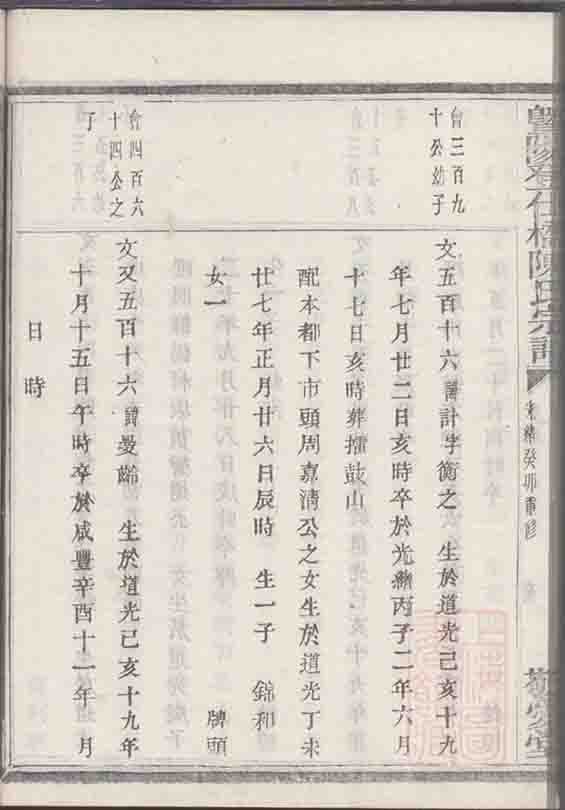 暨陽登仕橋陳氏宗譜
光緒癸卯重修
會三百九
十公幼子
文五百十六諱計字衡之　生於道光己亥十九
年七月廿二日亥時卒於光緒丙子二年六月
十七日亥時葬擂鼓山
配本都下市頭周嘉淸公之女生於道光丁未
廿七年正月廿六日辰時　生一子　錦和
女一　牌頭
會四百六
十四公之
子
文又五百十六諱曼齡　生於道光己亥十九年
十月十五日午時卒於咸豐辛酉十一年　月
日時